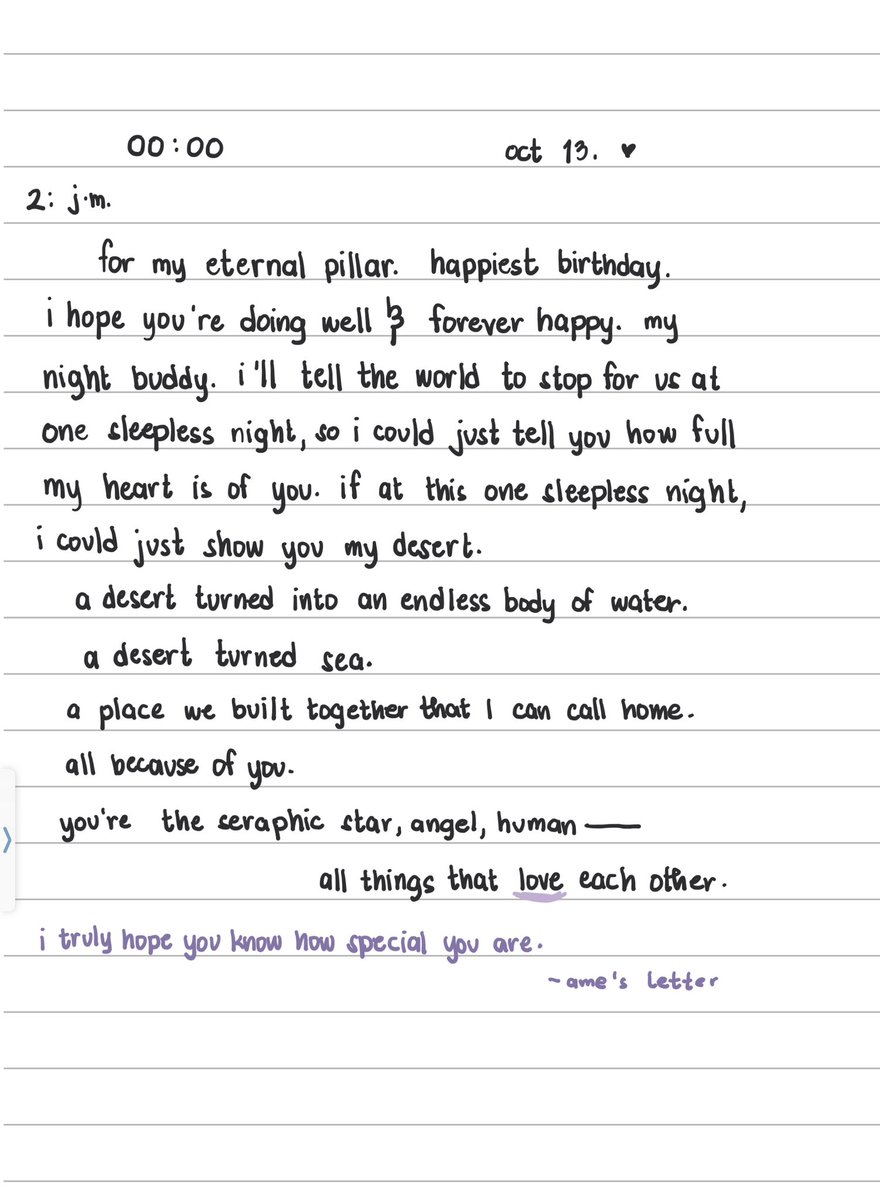 00:00 oct 13. ♥
2: j.m.
for my eternal pillar. happiest birthday.
i hope you're doing well & forever happy. my
night buddy. i'll tell the world to stop for us at
one sleepless night, so i could just tell you how full
my heart is of you. if at this one sleepless night,
i could just show you my desert.
a desert turned into an endless body of water.
a desert turned sea.
a place we built together that I can call home.
all because of you.
you're the seraphic star, angel, human —
all things that love each other.
i truly hope you know how special you are.
~ame's letter